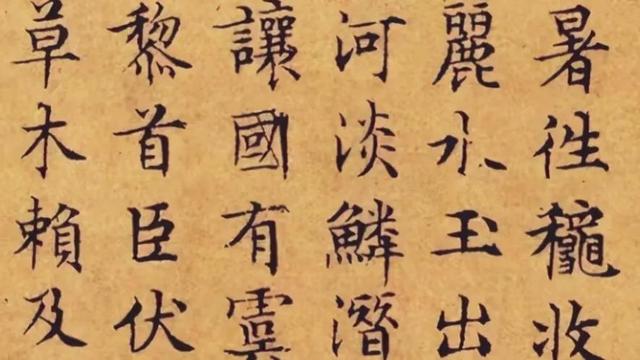 暑徃穐收
麗水玉出
河淡鱗潜
讓國有虞
黎首臣伏
草木賴及